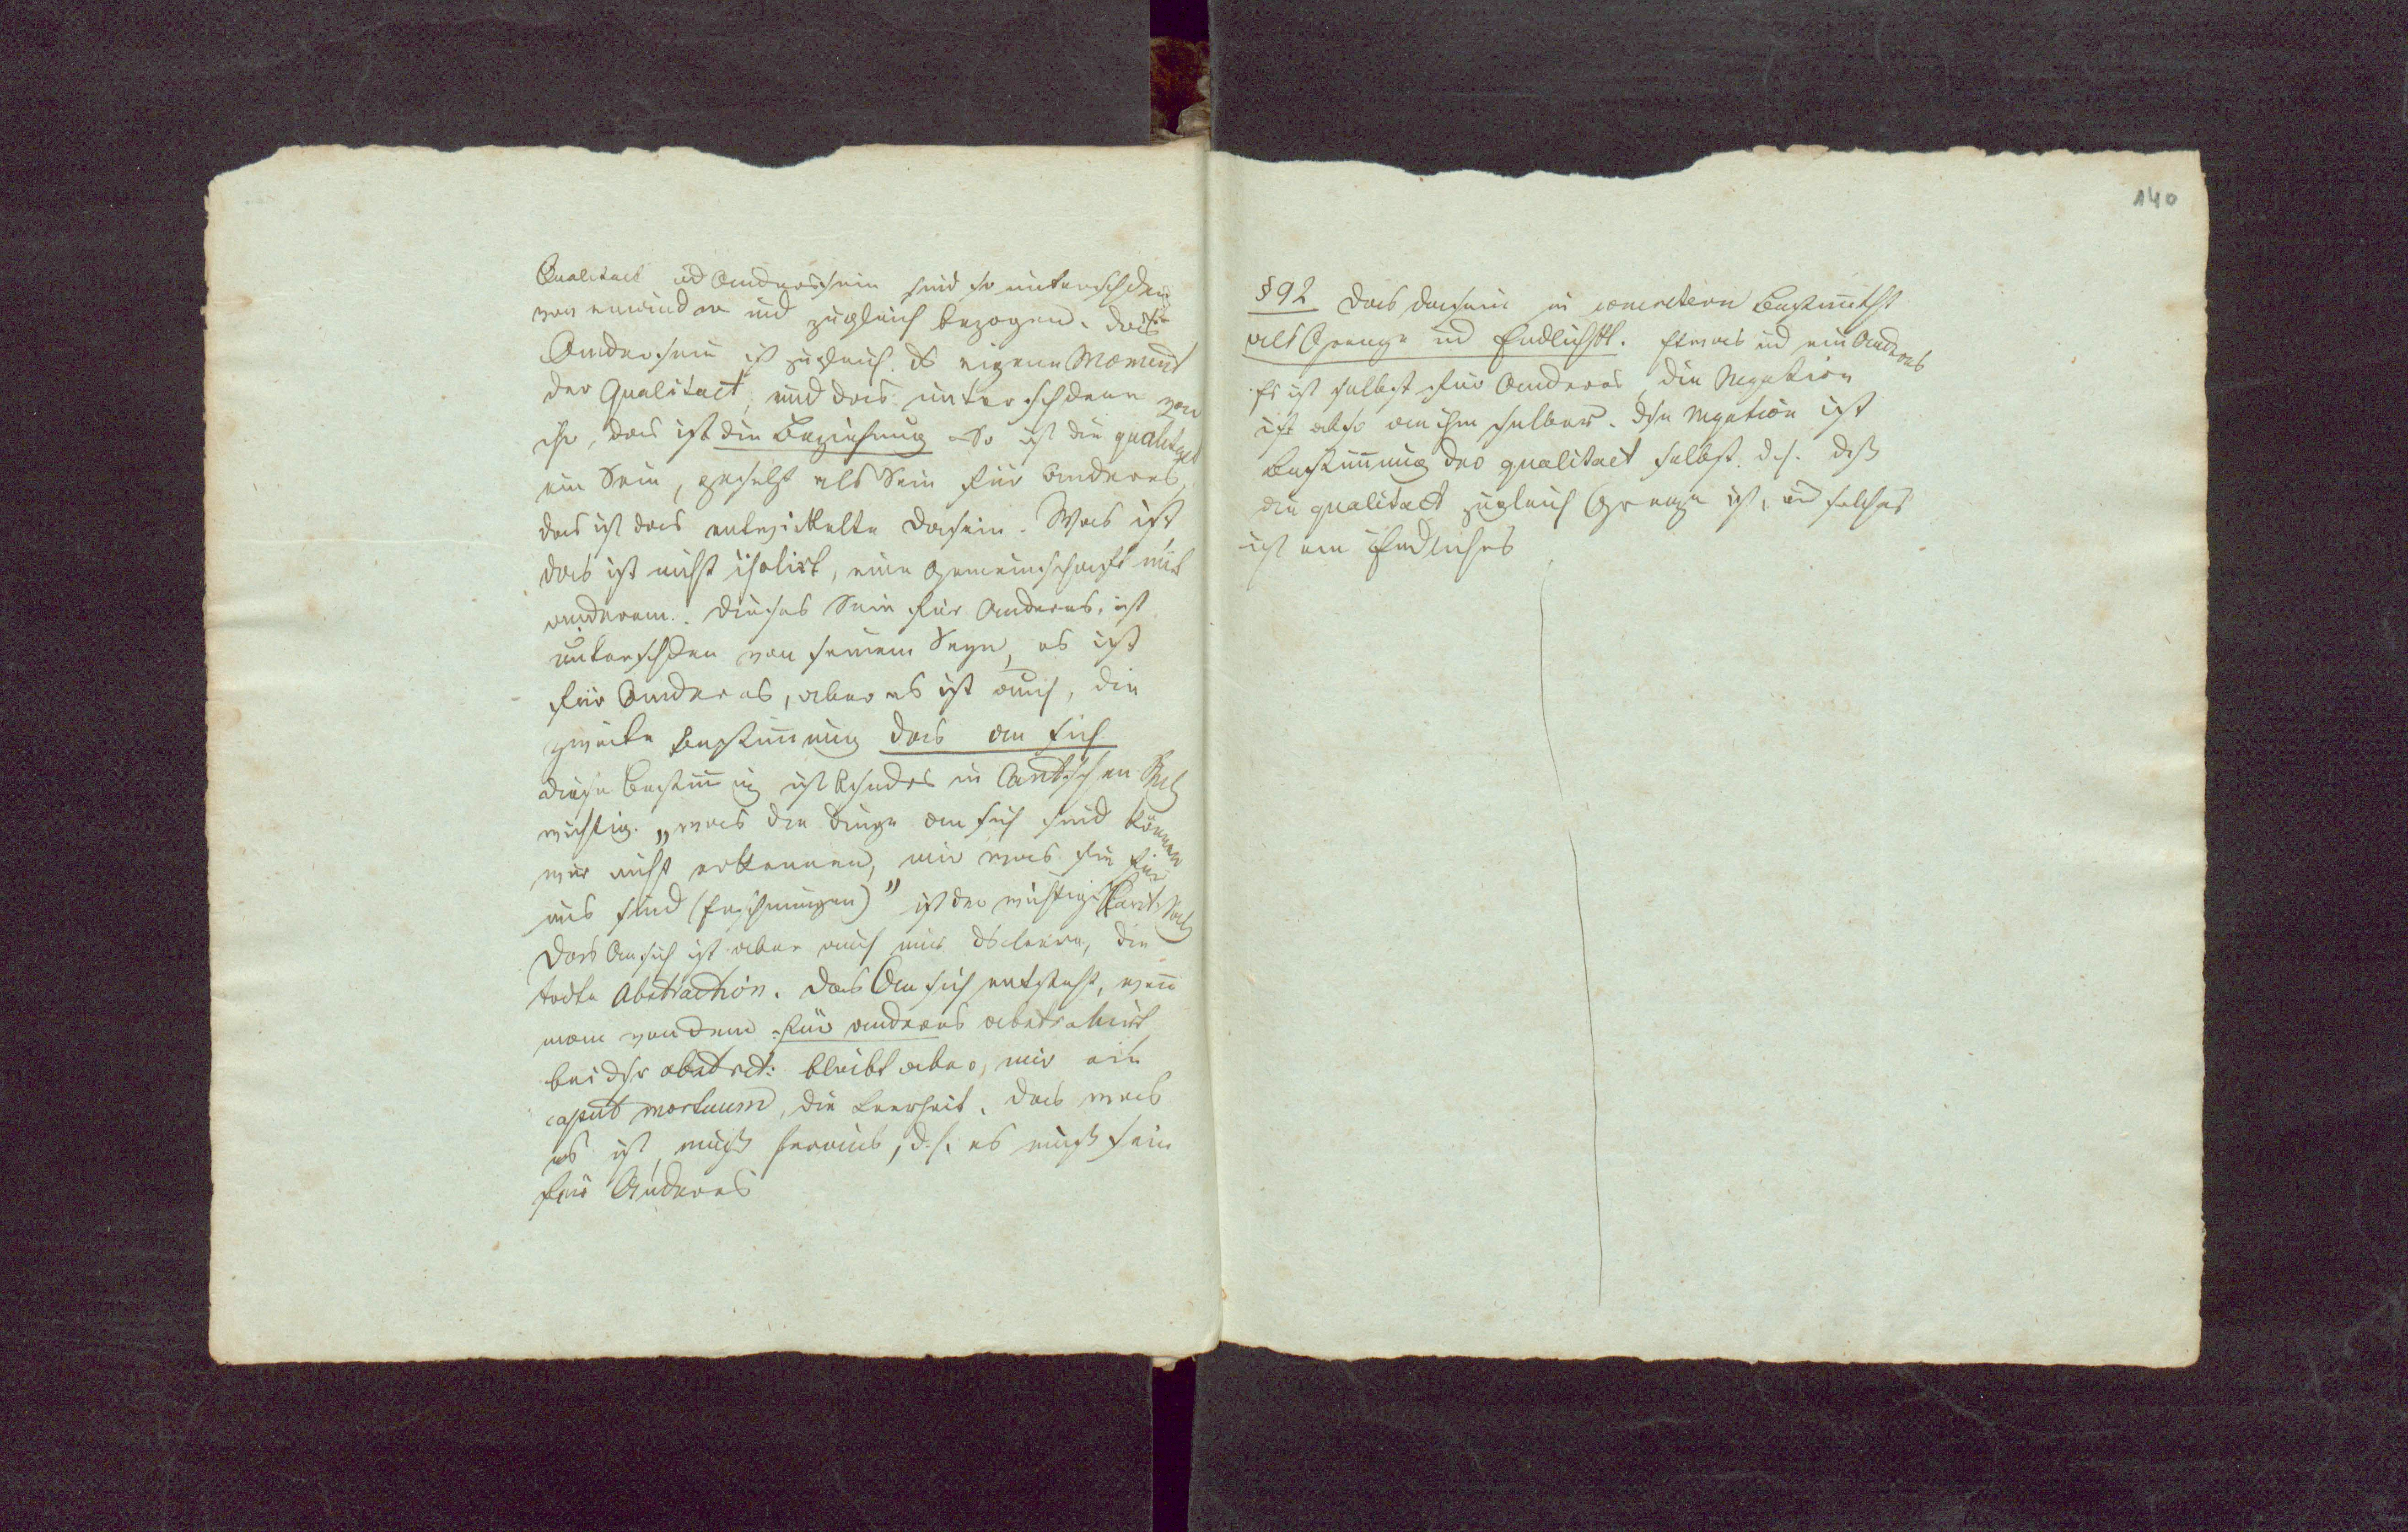 Qualitaet ud Anderssein sind so unterschden
von einander und zugleich bezogen. das
Anderssein ist zugleich ds eigene Moment
der Qualitaet, und das unterschdene von
ihr, das ist die Beziehung So ist die qualitaet
ein Sein, gesetzt als Sein für Anderes,
das ist das entwickelte Dasein. Was ist,
das ist nicht isolirt, eine Gemeinschaft mit
anderem. Dieses Sein für Anderes, ist
unterschden von seinem Seyn, es ist
für Anderes, aber es ist auch, die
zweite Bestim̄ung das an sich
diese Bestim̄ug ist bsnders in Cantschen
wichtig. „was die Dinge an sich sind können
wir nicht erkennen, nur was sie für
uns sind (Erschnungen)" ist der wichtige Kant: Satz
Das Ansich ist aber auch nur ds leere, die
todte Abstraction. das Ansich entsteht, wen̄
man von dem für anderes abstrahirt
bei dsr abstrct: bleibt aber, nur ein
caput mortuum, die Leerheit. das was
es ist, muß heraus, d.h. es muß sein
für Anderes
140
§ 92 das Dasein in concreterer Bestim̄tht
als Grenze ud Endlichkt. Etwas ud ein Anderes
Es ist selbst für Anderes, die Negation
ist also an ihm selber. dse Negation ist
Bestim̄ung der qualitaet selbst. d.h. dß
die qualitaet zugleich Grenze ist, ud solches
ist ein Endliches